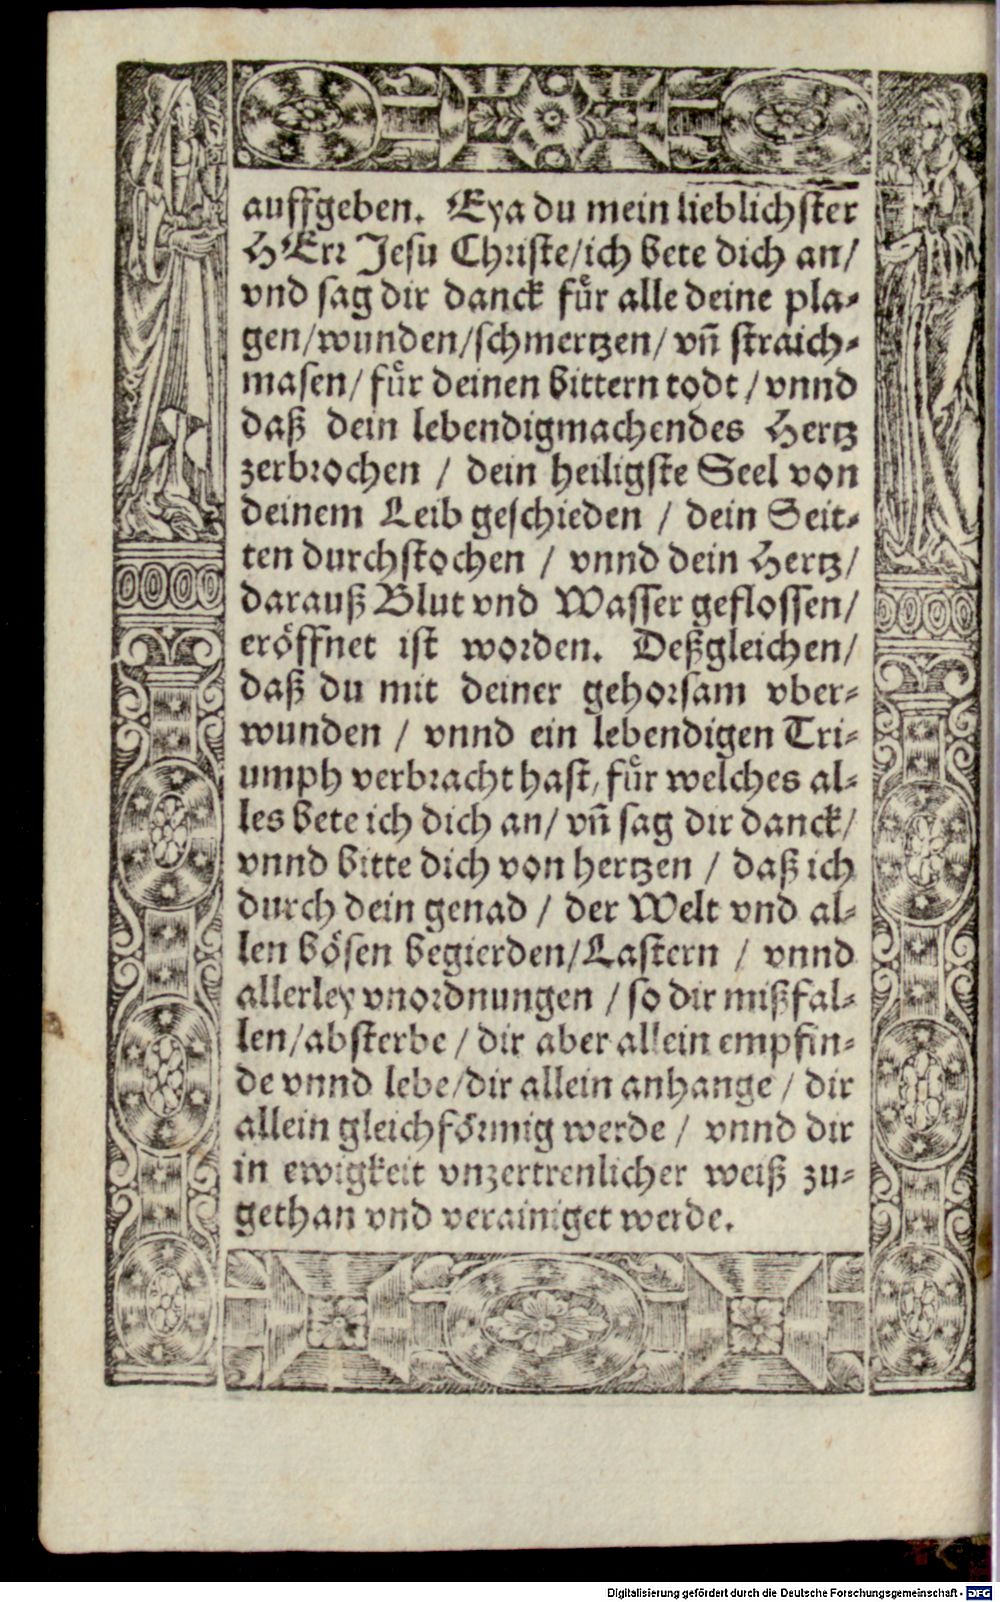 auffgeben. Eya du mein lieblichster
HErr Jesu Christe/ich bete dich an/
vnd sag dir danck fuͤr alle deine pla-
gen/wunden/schmertzen/ vñ straich-
masen/ fuͤr deinen bittern todt / vnnd
daß dein lebendigmachendes Hertz
zerbrochen / dein heiligste Seel von
deinem Leib geschieden / dein Seit-
ten durchstochen / vnnd dein Hertz/
darauß Blut vnd Wasser geflossen/
eroͤffnet ist worden. Deßgleichen/
daß du mit deiner gehorsam vber-
wunden / vnnd ein lebendigen Tri-
umph verbracht hast, fuͤr welches al-
les bete ich dich an/ vñ sag dir danck/
vnnd bitte dich von hertzen / daß ich
durch dein genad / der Welt vnd al-
len boͤsen begierden/Lastern / vnnd
allerley vnordnungen / so dir mißfal-
len/absterbe / dir aber allein empfin-
de vnnd lebe/dir allein anhange / dir
allein gleichfoͤrmig werde / vnnd dir
in ewigkeit vnzertrenlicher weiß zu-
gethan vnd verainiget werde.
Digitalisierung gefördert durch die Deutsche Forschungsgemeinschaft - DFG